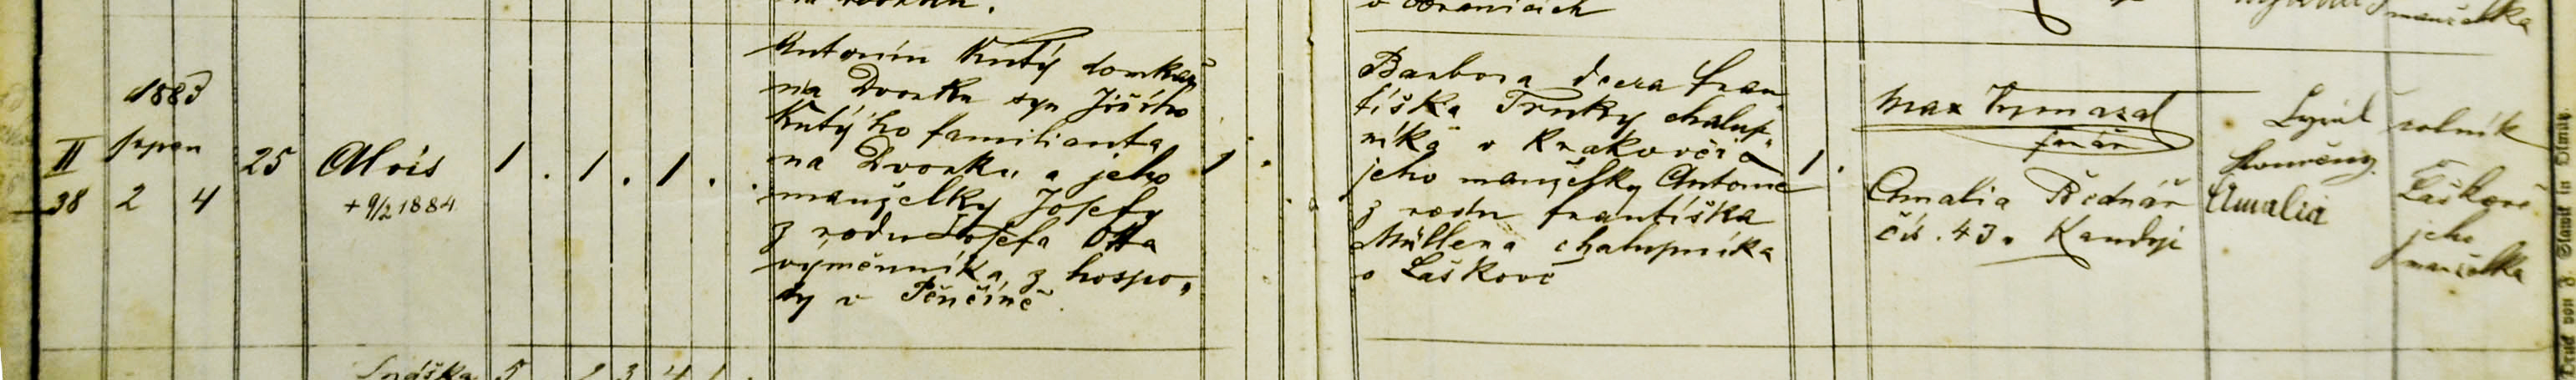 v
manželka
1883
II srpen
38 2 4
25
Alois
+ 9/2 1884
1 . 1 . 1 .
Antonín Kutý domkař
na Dvorku syn Jiřího
Kutýho familianta
na Dvorku a jeho
manželky Josefy
z rodu Josefa Otta
výměnníka z hospo-
dy v Pěnčíně
1 .
Barbora dcera Fran-
tiška Trnky chalup-
níka v Krakovčić
jeho manželky Antonie
z rodu Františka
Müllera chalupníka
v Laškově
1 .
Max Vymazal
farář
Amalia Bednář
čís. 43. Kandyi
Cyril
Amalia
rolník
v
Laškově
jeho
manželka
5 2 3 4 1